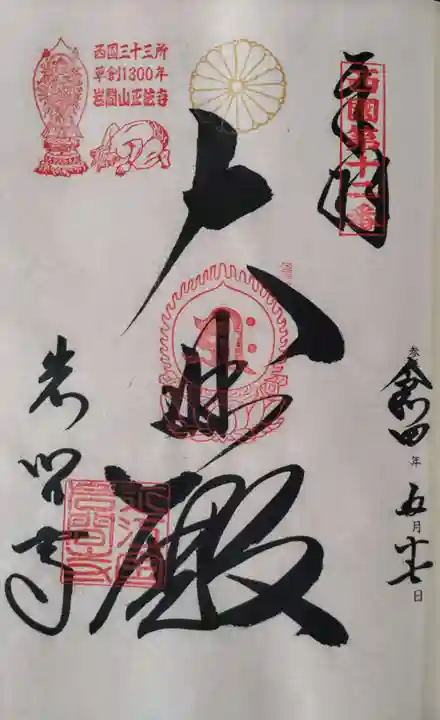 西国三十三所
草創1300年
岩間山正法寺
西国第十二番
奉拝
大悲殿
岩間寺
令和四年五月十七日